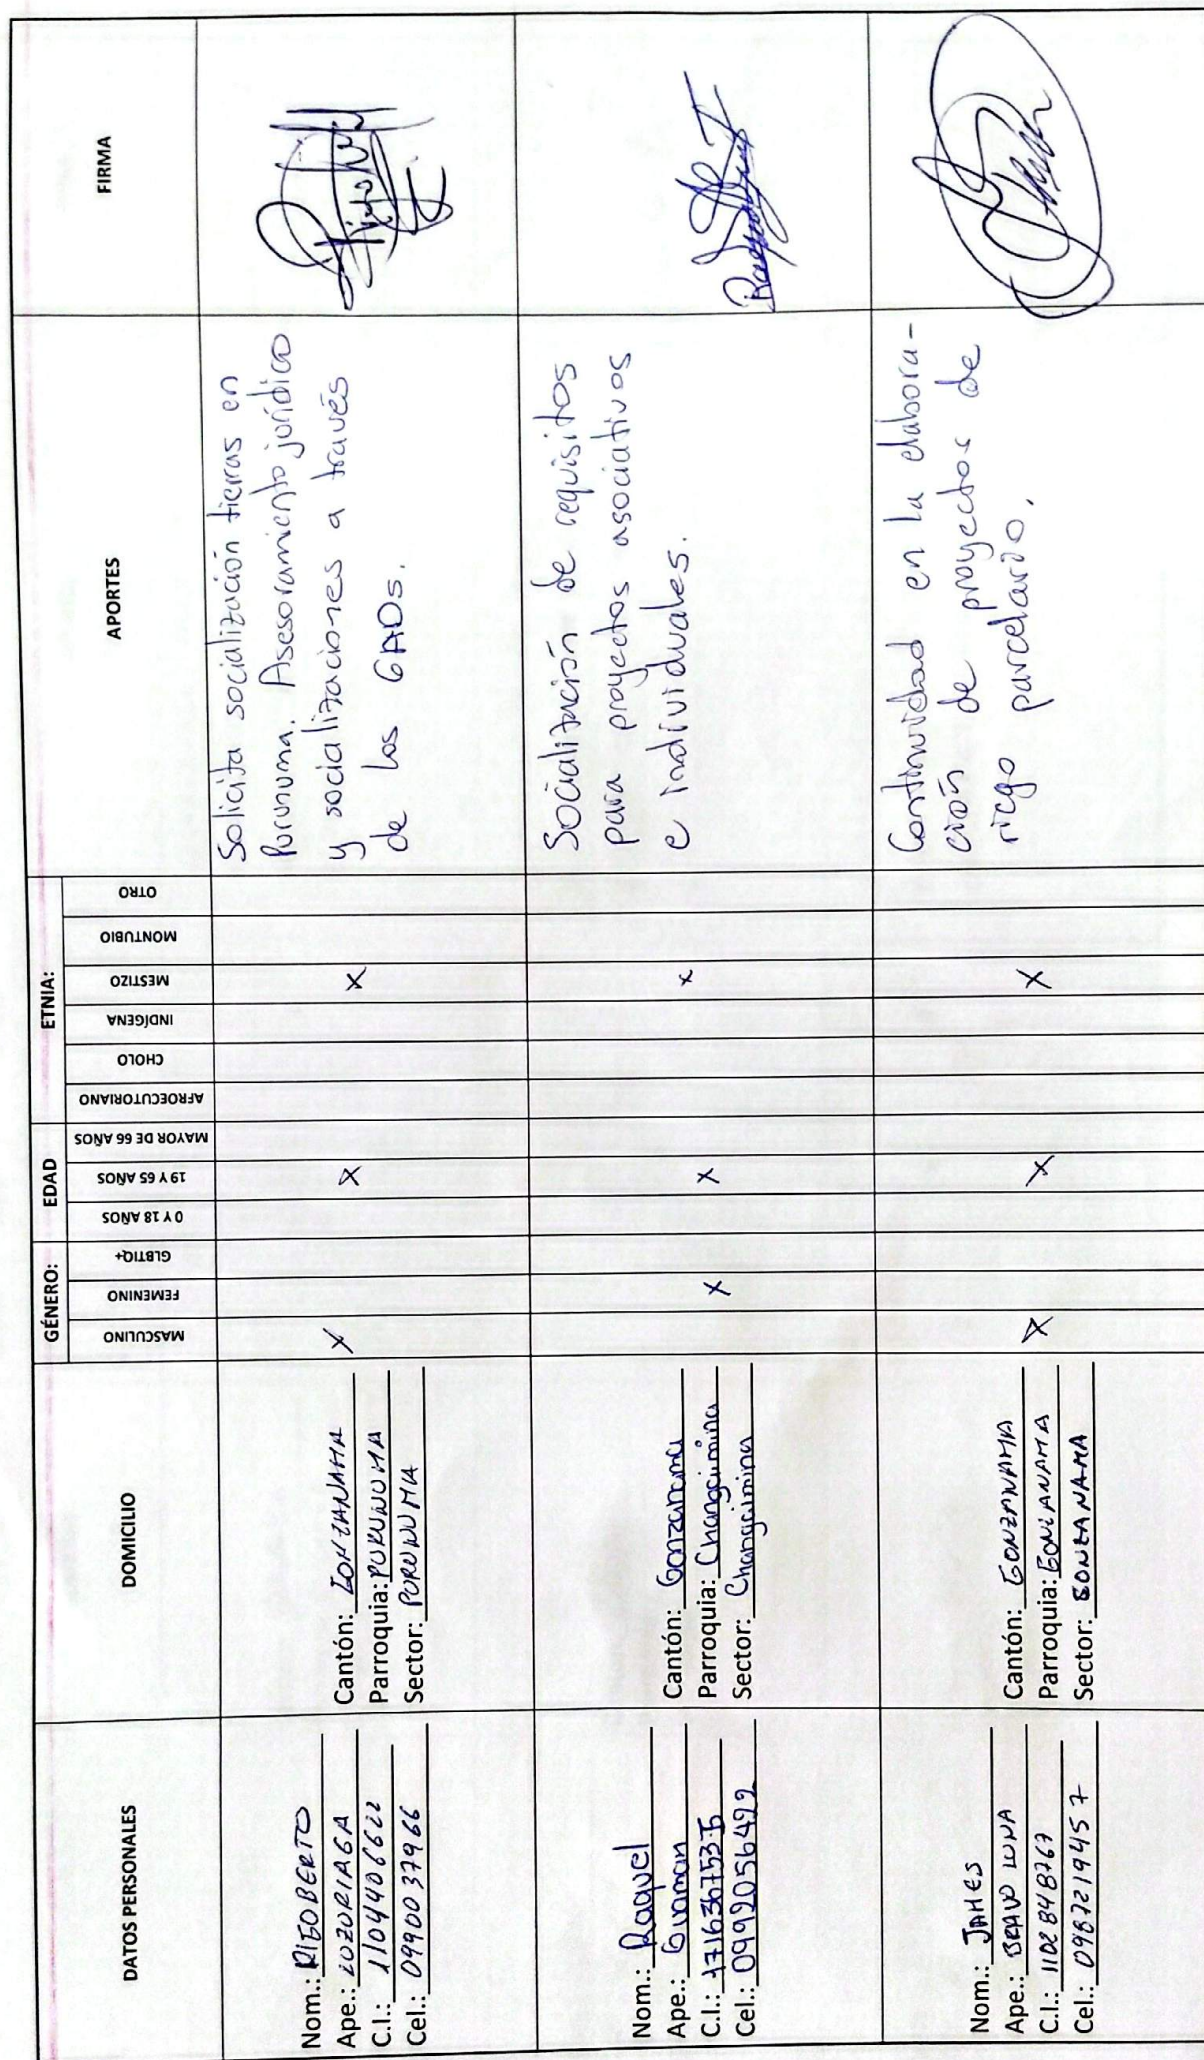 DATOS PERSONALES
DOMICILIO
GÉNERO:
EDAD
ETNIA:
APORTES
FIRMA
MASCULINO
FEMENINO
GLBTIQ+
0 Y 18 AÑOS
19 Y 65 AÑOS
MAYOR DE 66 AÑOS
AFROECUTORIANO
CHOLO
INDÍGENA
MESTIZO
MONTUBIO
OTRO
Nom.: RIGOBERTO
Ape.: LUZURIAGA
C.I.: 1104406622
Cel.: 0990037966
Cantón: GONZANAMA
Parroquia: PURUNUMA
Sector: PURUNUMA
X
X
X
Solicita socialización tierras en
Purunuma. Asesoramiento jurídico
y socializaciones a través
de los GADs.
Nom.: Raquel
Ape.: Guaman
C.I.:
Cel.: 0992056492
Cantón: Gonzanama
Parroquia: Changaimina
Sector: Changaimina
X
X
X
Socialización de requisitos
para proyectos asociativos
e individuales.
Nom.: JAMES
Ape.: BRAVO LUNA
C.I.: 1102848767
Cel.: 0987219457
Cantón: GONZANAMA
Parroquia: GONZANAMA
Sector: GONZANAMA
X
X
X
Continuidad en la elabora-
ción de proyectos de
riego parcelario.